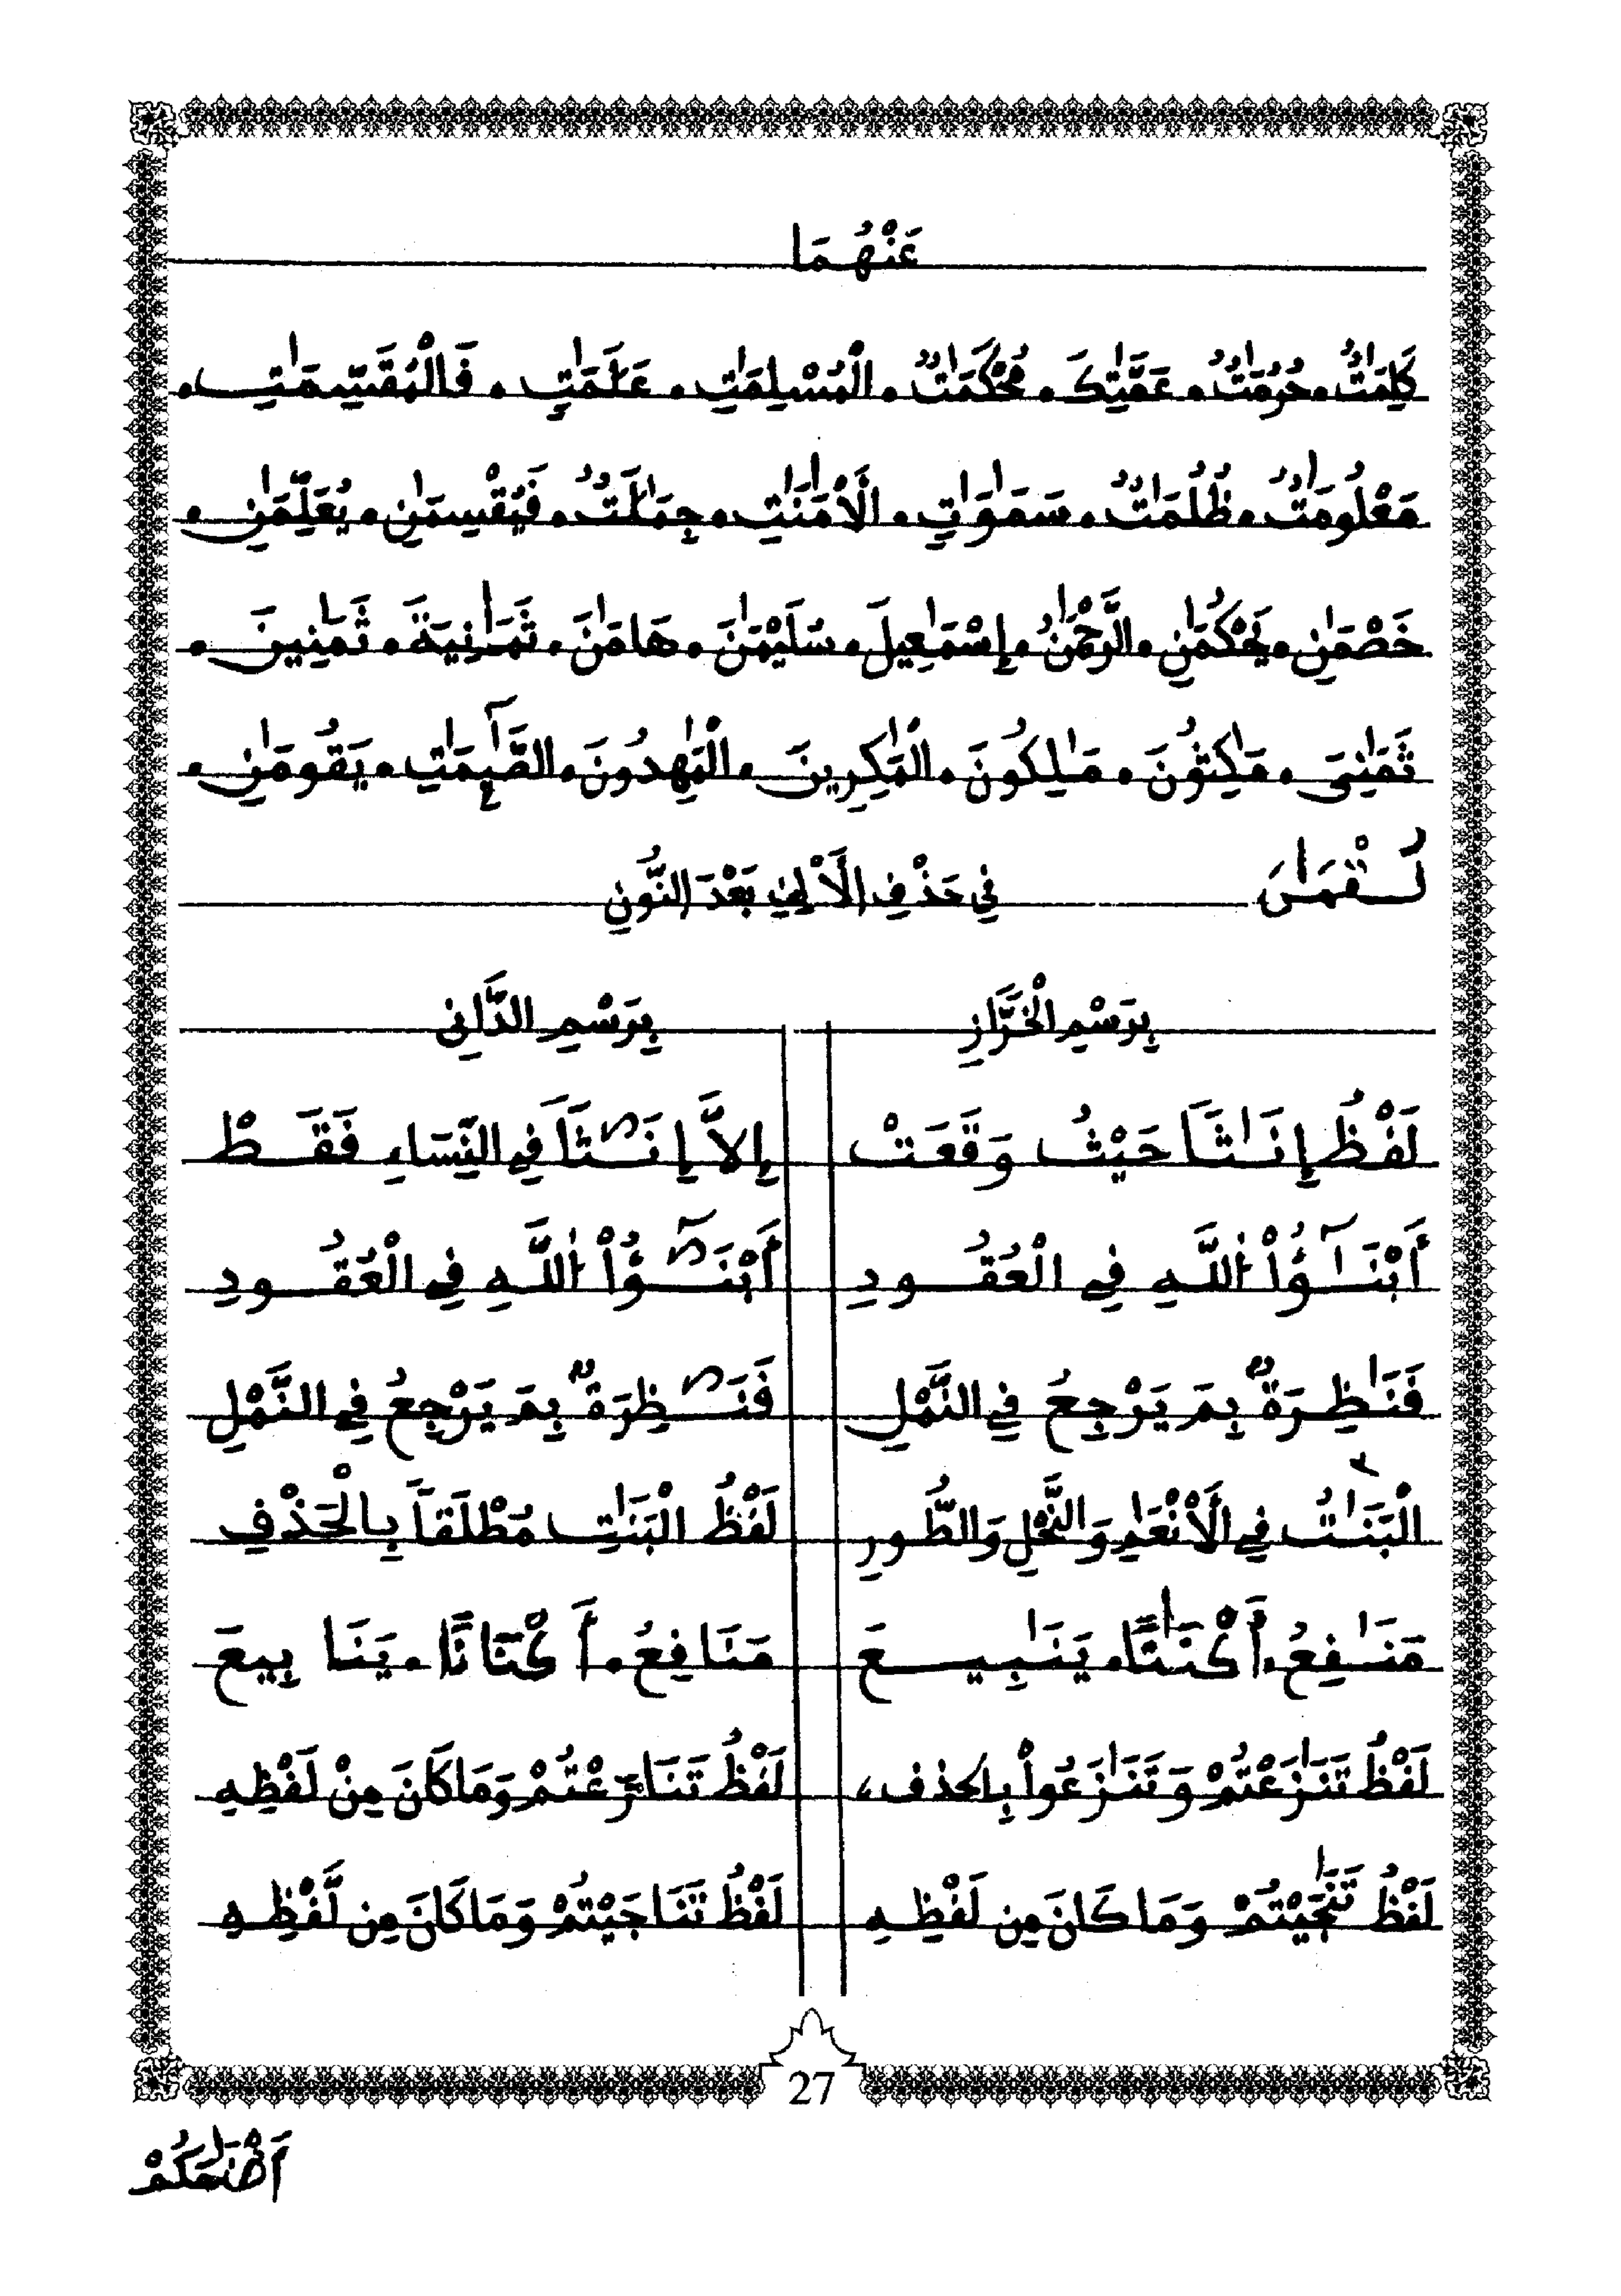 عَنْهُمَا
كَلِمَٰتٌ. حُرُمَٰتٌ. عَمَّٰتِكَ. مُّحْكَمَٰتٌ. الْمُسْلِمَٰتِ. عَلَٰمَٰتٍ. فَالْمُقَسِّمَٰتِ.
مَعْلُومَٰتٌ. ظُلُمَٰتٌ. سَمَٰوَٰتٍ. الَأمَٰنَٰتِ. جِمَٰلَٰتٌ. فَيُقْسِمَٰنِ. يُعَلِّمَٰنِ.
خَصْمَٰنِ. يَحْكُمَٰنِ. الرَّحْمَٰنُ. إِسْمَٰعِيلَ. سُلَيْمَٰنَ. هَامَٰنَ. ثَمَٰنِيَةَ. ثَمَٰنِينَ.
ثَمَٰنِىَ. مَٰكِثُونَ. مَٰلِكُونَ. الْمَٰكِرِينَ. الْمَٰهِدُونَ. الصَّٰٓئِمَٰتِ. يَقُومَٰنِ.
لُقْمَٰنَ فِي حَذْفِ الَألِفِ بَعْدَ النُّونِ
بِرَسْمِ الْخَرَّازِ بِرَسْمِ الدَّانِي
لَفْظُ إِنَٰثاً حَيْثُ وَقَعَتْ إِلاَّ إِنَٰثاً فِي النِّسَاءِ فَقَطْ
أَبْنَٰٓؤُاْ اللَّهِ فِي الْعُقُودِ أَبْنَٰٓؤُاْ اللَّهِ فِي الْعُقُودِ
فَنَٰظِرَةٌ بِمَ يَرْجِعُ فِي النَّمْلِ فَنَٰظِرَةٌ بِمَ يَرْجِعُ فِي النَّمْلِ
الْبَنَٰتُ فِي الَأنْعَٰمِ وَالنَّحْلِ وَالطُّورِ لَفْظُ الْبَنَٰتِ مُطْلَقاً بِالْحَذْفِ
مَنَٰفِعُ. أَكْنَٰناً. يَنَٰبِيعَ مَنَافِعُ. أَكْنَاناً. يَنَابِيعَ
لَفْظُ تَنَٰزَعْتُمْ وَتَنَٰزَعُواْ بِالحذف، لَفْظُ تَنَازَعْتُمْ وَمَا كَانَ مِنْ لَفْظِهِ
لَفْظُ تَنَٰجَيْتُمْ وَمَا كَانَ مِن لَفْظِهِ لَفْظُ تَنَاجَيْتُمْ وَمَا كَانَ مِن لَّفْظِهِ
27